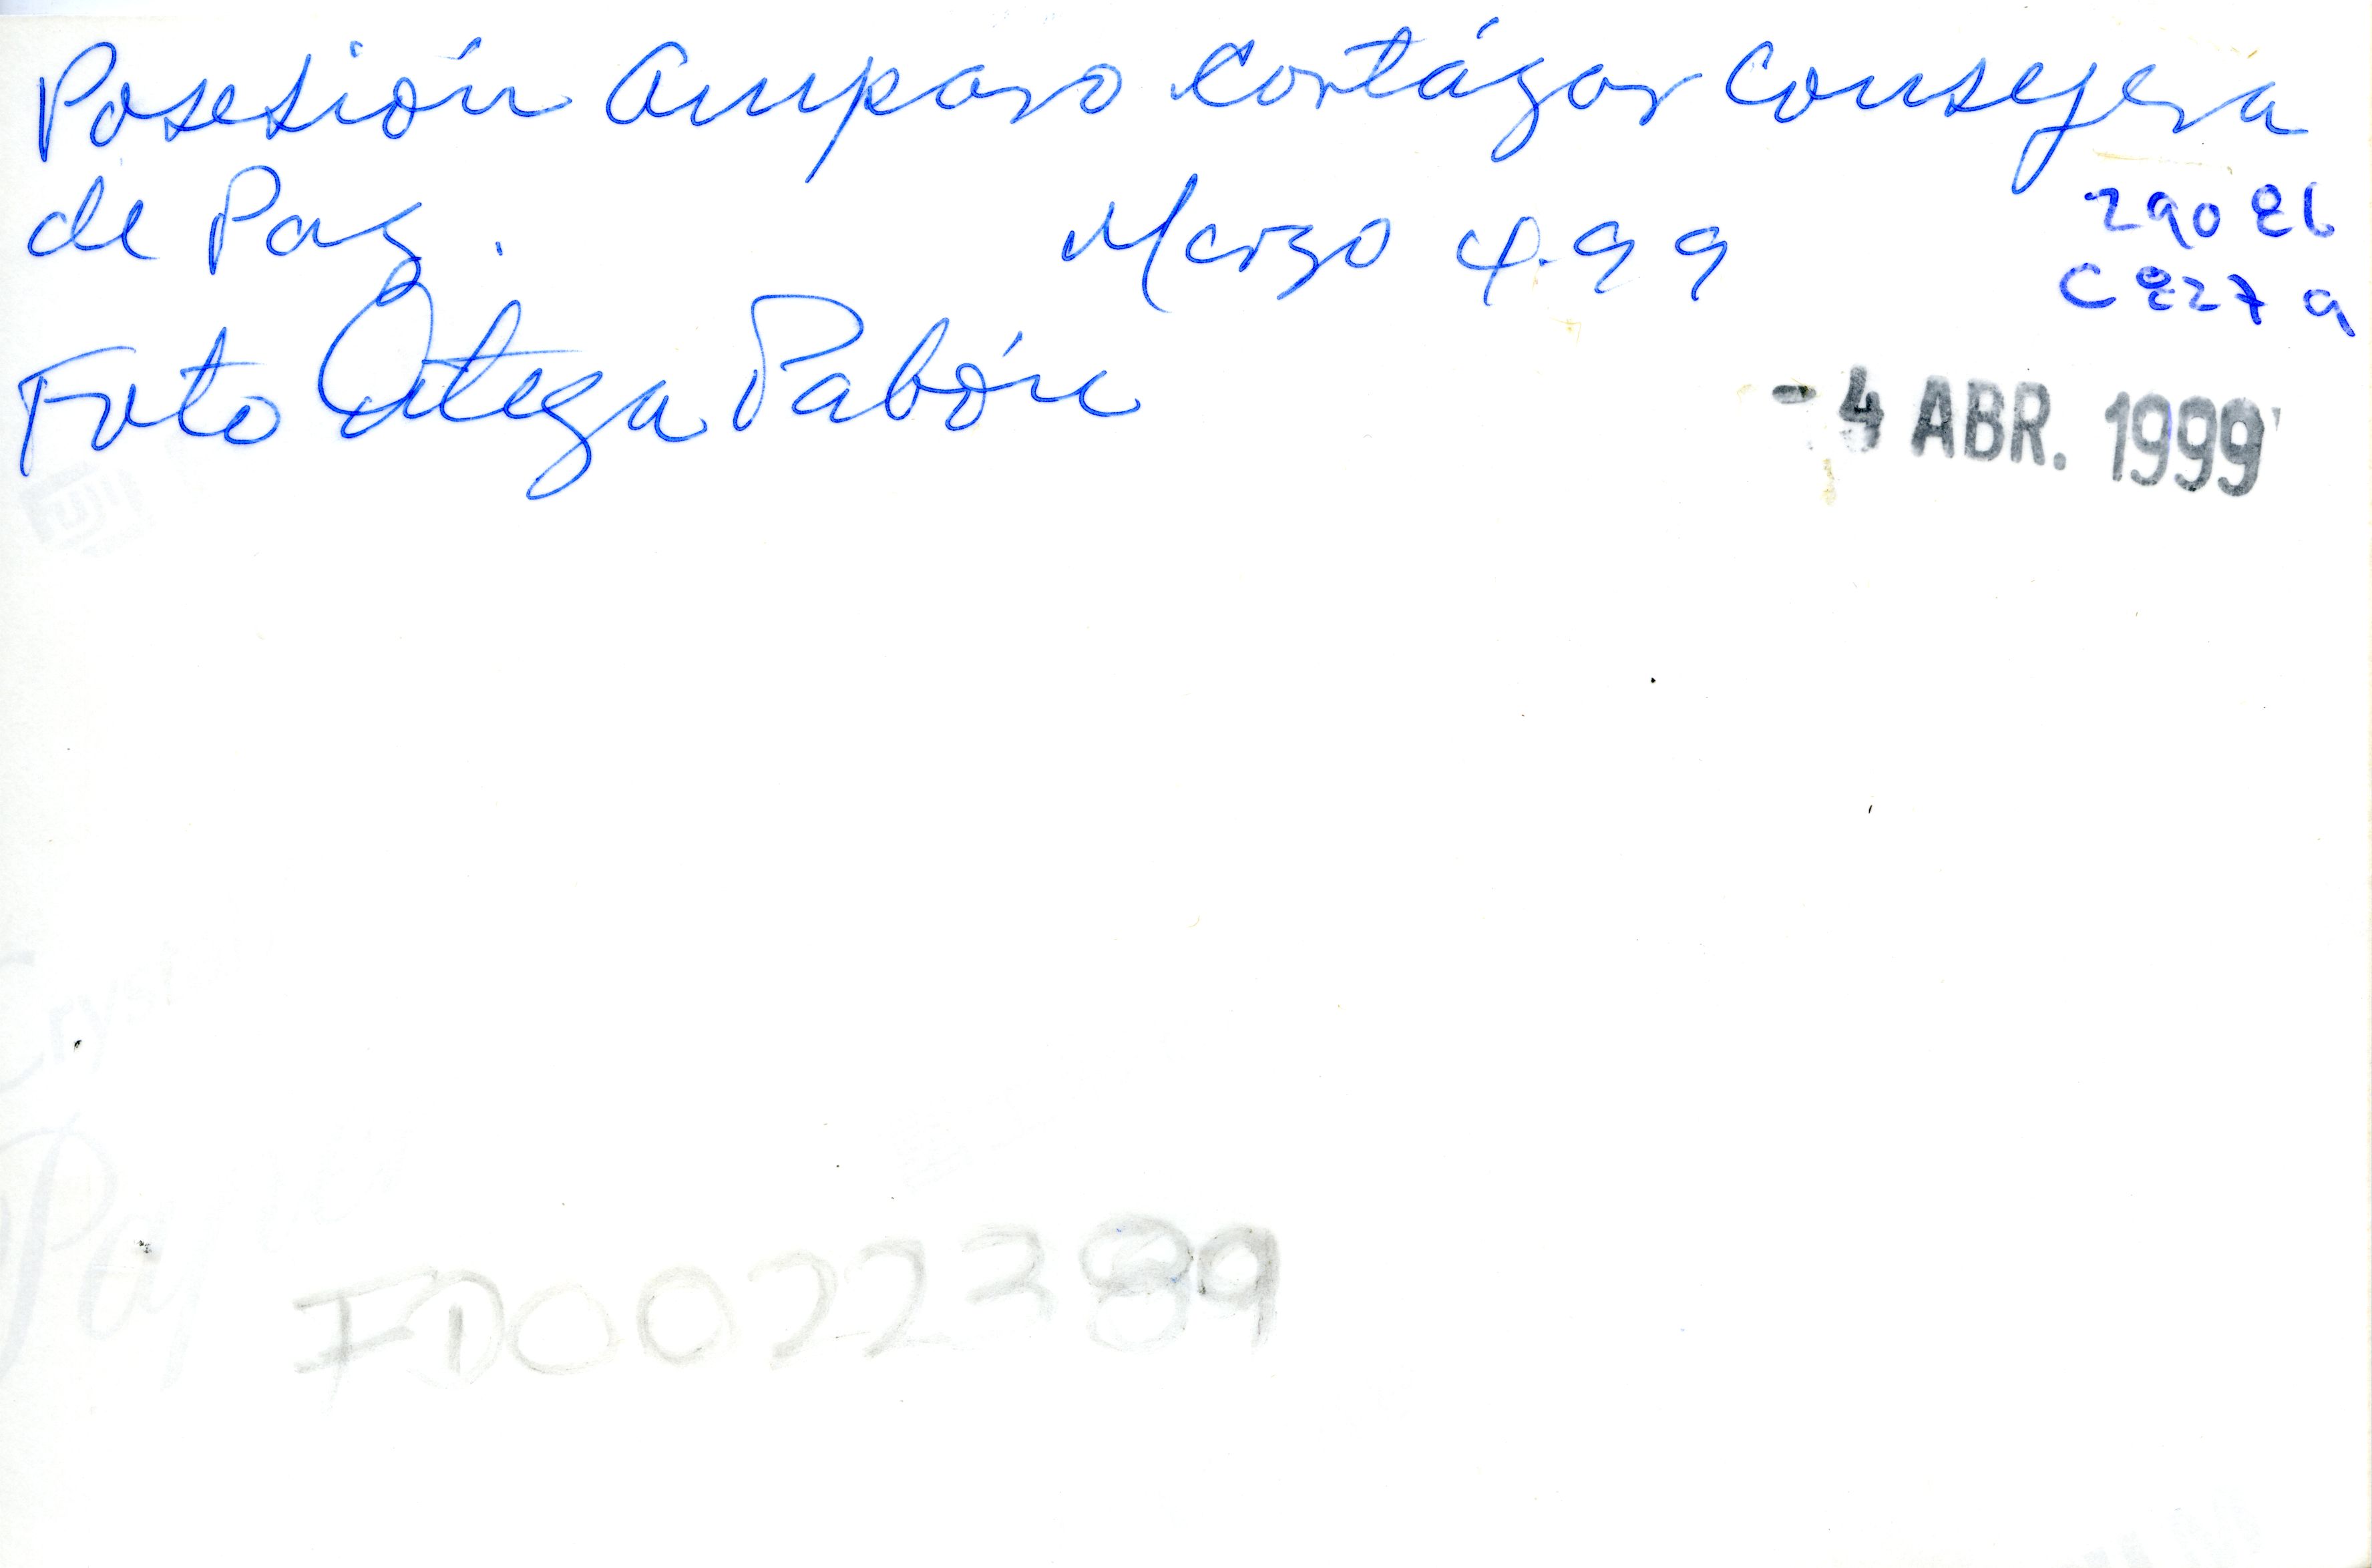 Posesión Amparo Cortázar Consejera
de Paz. Marzo 4.99
29086
C827a
Foto Ortega Pabón
-4 ABR. 1999
FD0022389